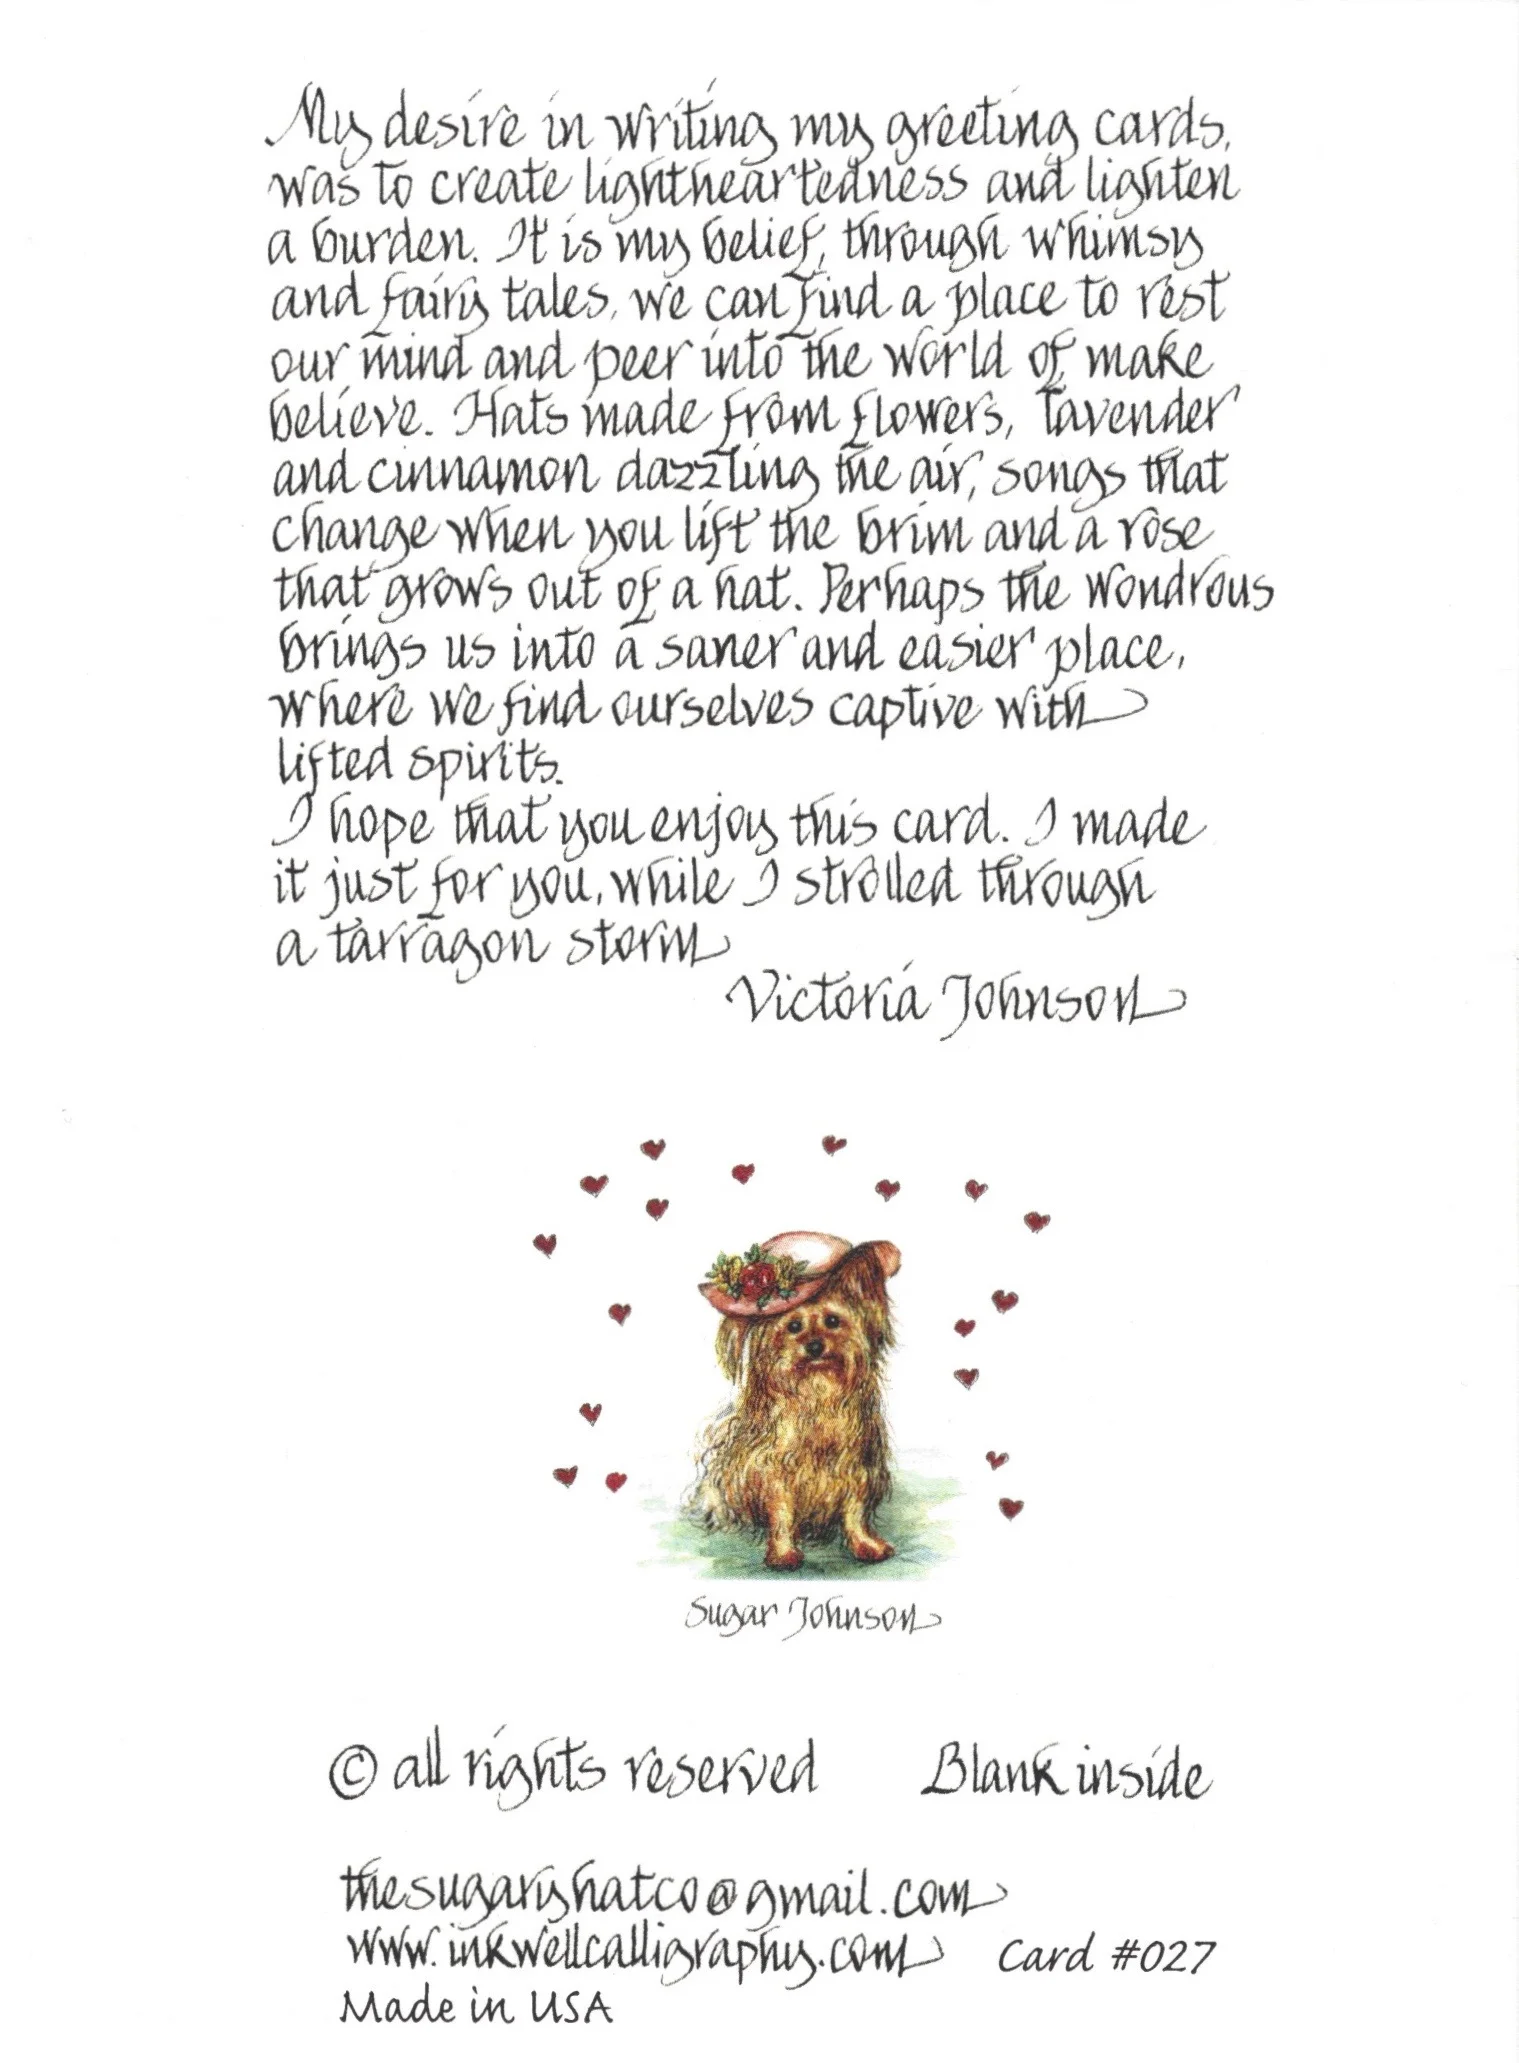 My desire in writing my greeting cards,
was to create lightheartedness and lighten
a burden. It is my belief, through whimsy
and fairy tales, we can find a place to rest
our mind and peer into the world of make
believe. Hats made from flowers, lavender
and cinnamon dazzling the air, songs that
change when you lift the brim and a rose
that grows out of a hat. Perhaps the wondrous
brings us into a saner and easier place,
where we find ourselves captive with
lifted spirits.
I hope that you enjoy this card. I made
it just for you, while I strolled through
a tarragon storm
Victoria Johnson
Sugar Johnson
© all rights reserved Blank inside
thesugaryhatco@gmail.com
www.inkwellcalligraphy.com Card #027
Made in USA